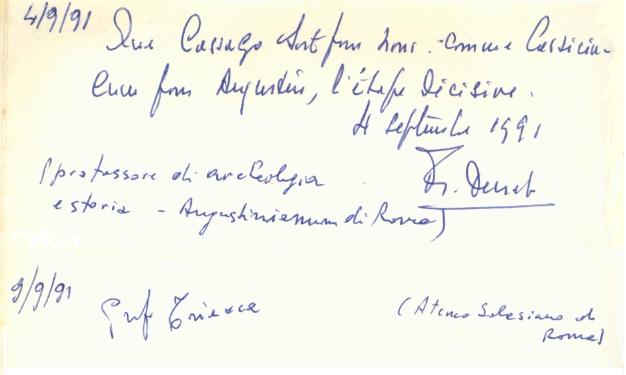 4/9/91 Que Cassago soit pour nous - comme Cassicia-
cum pour Augustin, l'étape décisive.
4 septembre 1991
(professore di archeologia
e storia - Augustinianum di Roma)
9/9/91 Prof
(Ateneo Salesiano di
Roma)